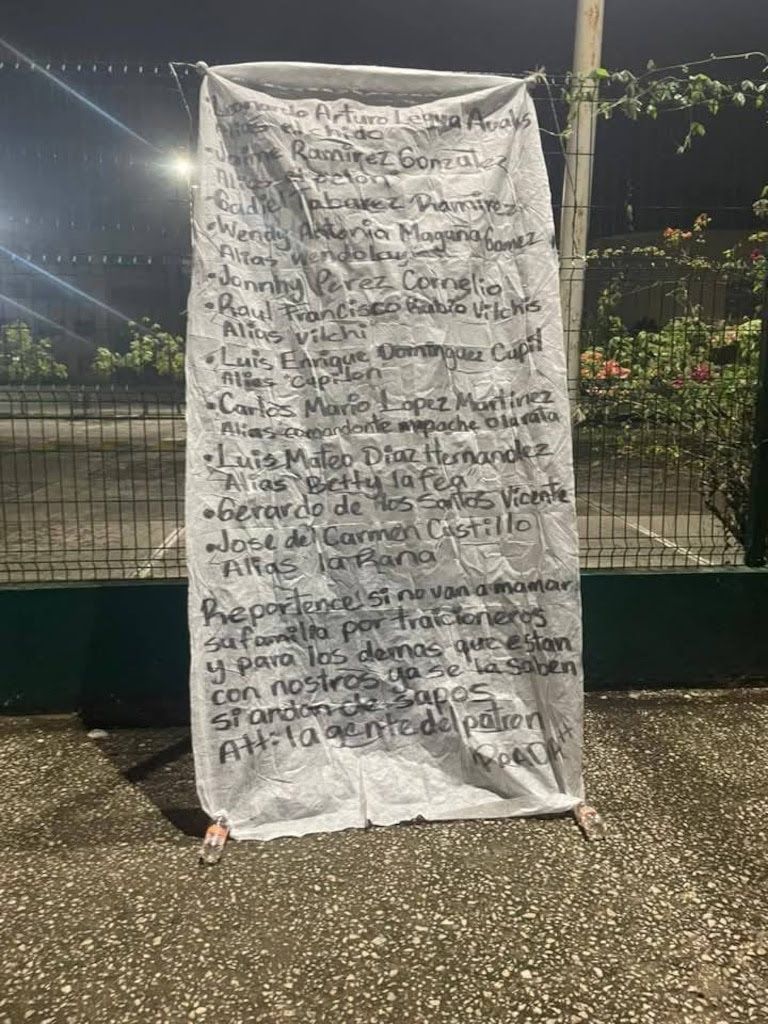 •Leonardo Arturo Avalos
Alias el chido
•Jaime Ramirez Gonzalez
Alias "el pelon"
•Gadiel Tabarez Ramirez
•Wendy Antonia Magaña Gomez
Alias wendolay
•Jonnhy Perez Cornelio
•Raul Francisco Rubio Vilchis
Alias vilchi
•Luis Enrique Dominguez Cupil
Alias "Cupilon"
•Carlos Mario Lopez Martinez
Alias comandante mapache o la rata
•Luis Mateo Diaz Hernandez
Alias "Betty la fea"
•Gerardo de los Santos Vicente
•Jose del Carmen Castillo
Alias "la Rana"
Reportence si no van a mamar
su familia por traicioneros
y para los demas que estan
con nostros ya se la saben
si andan de sapos
Att: la gente del patron